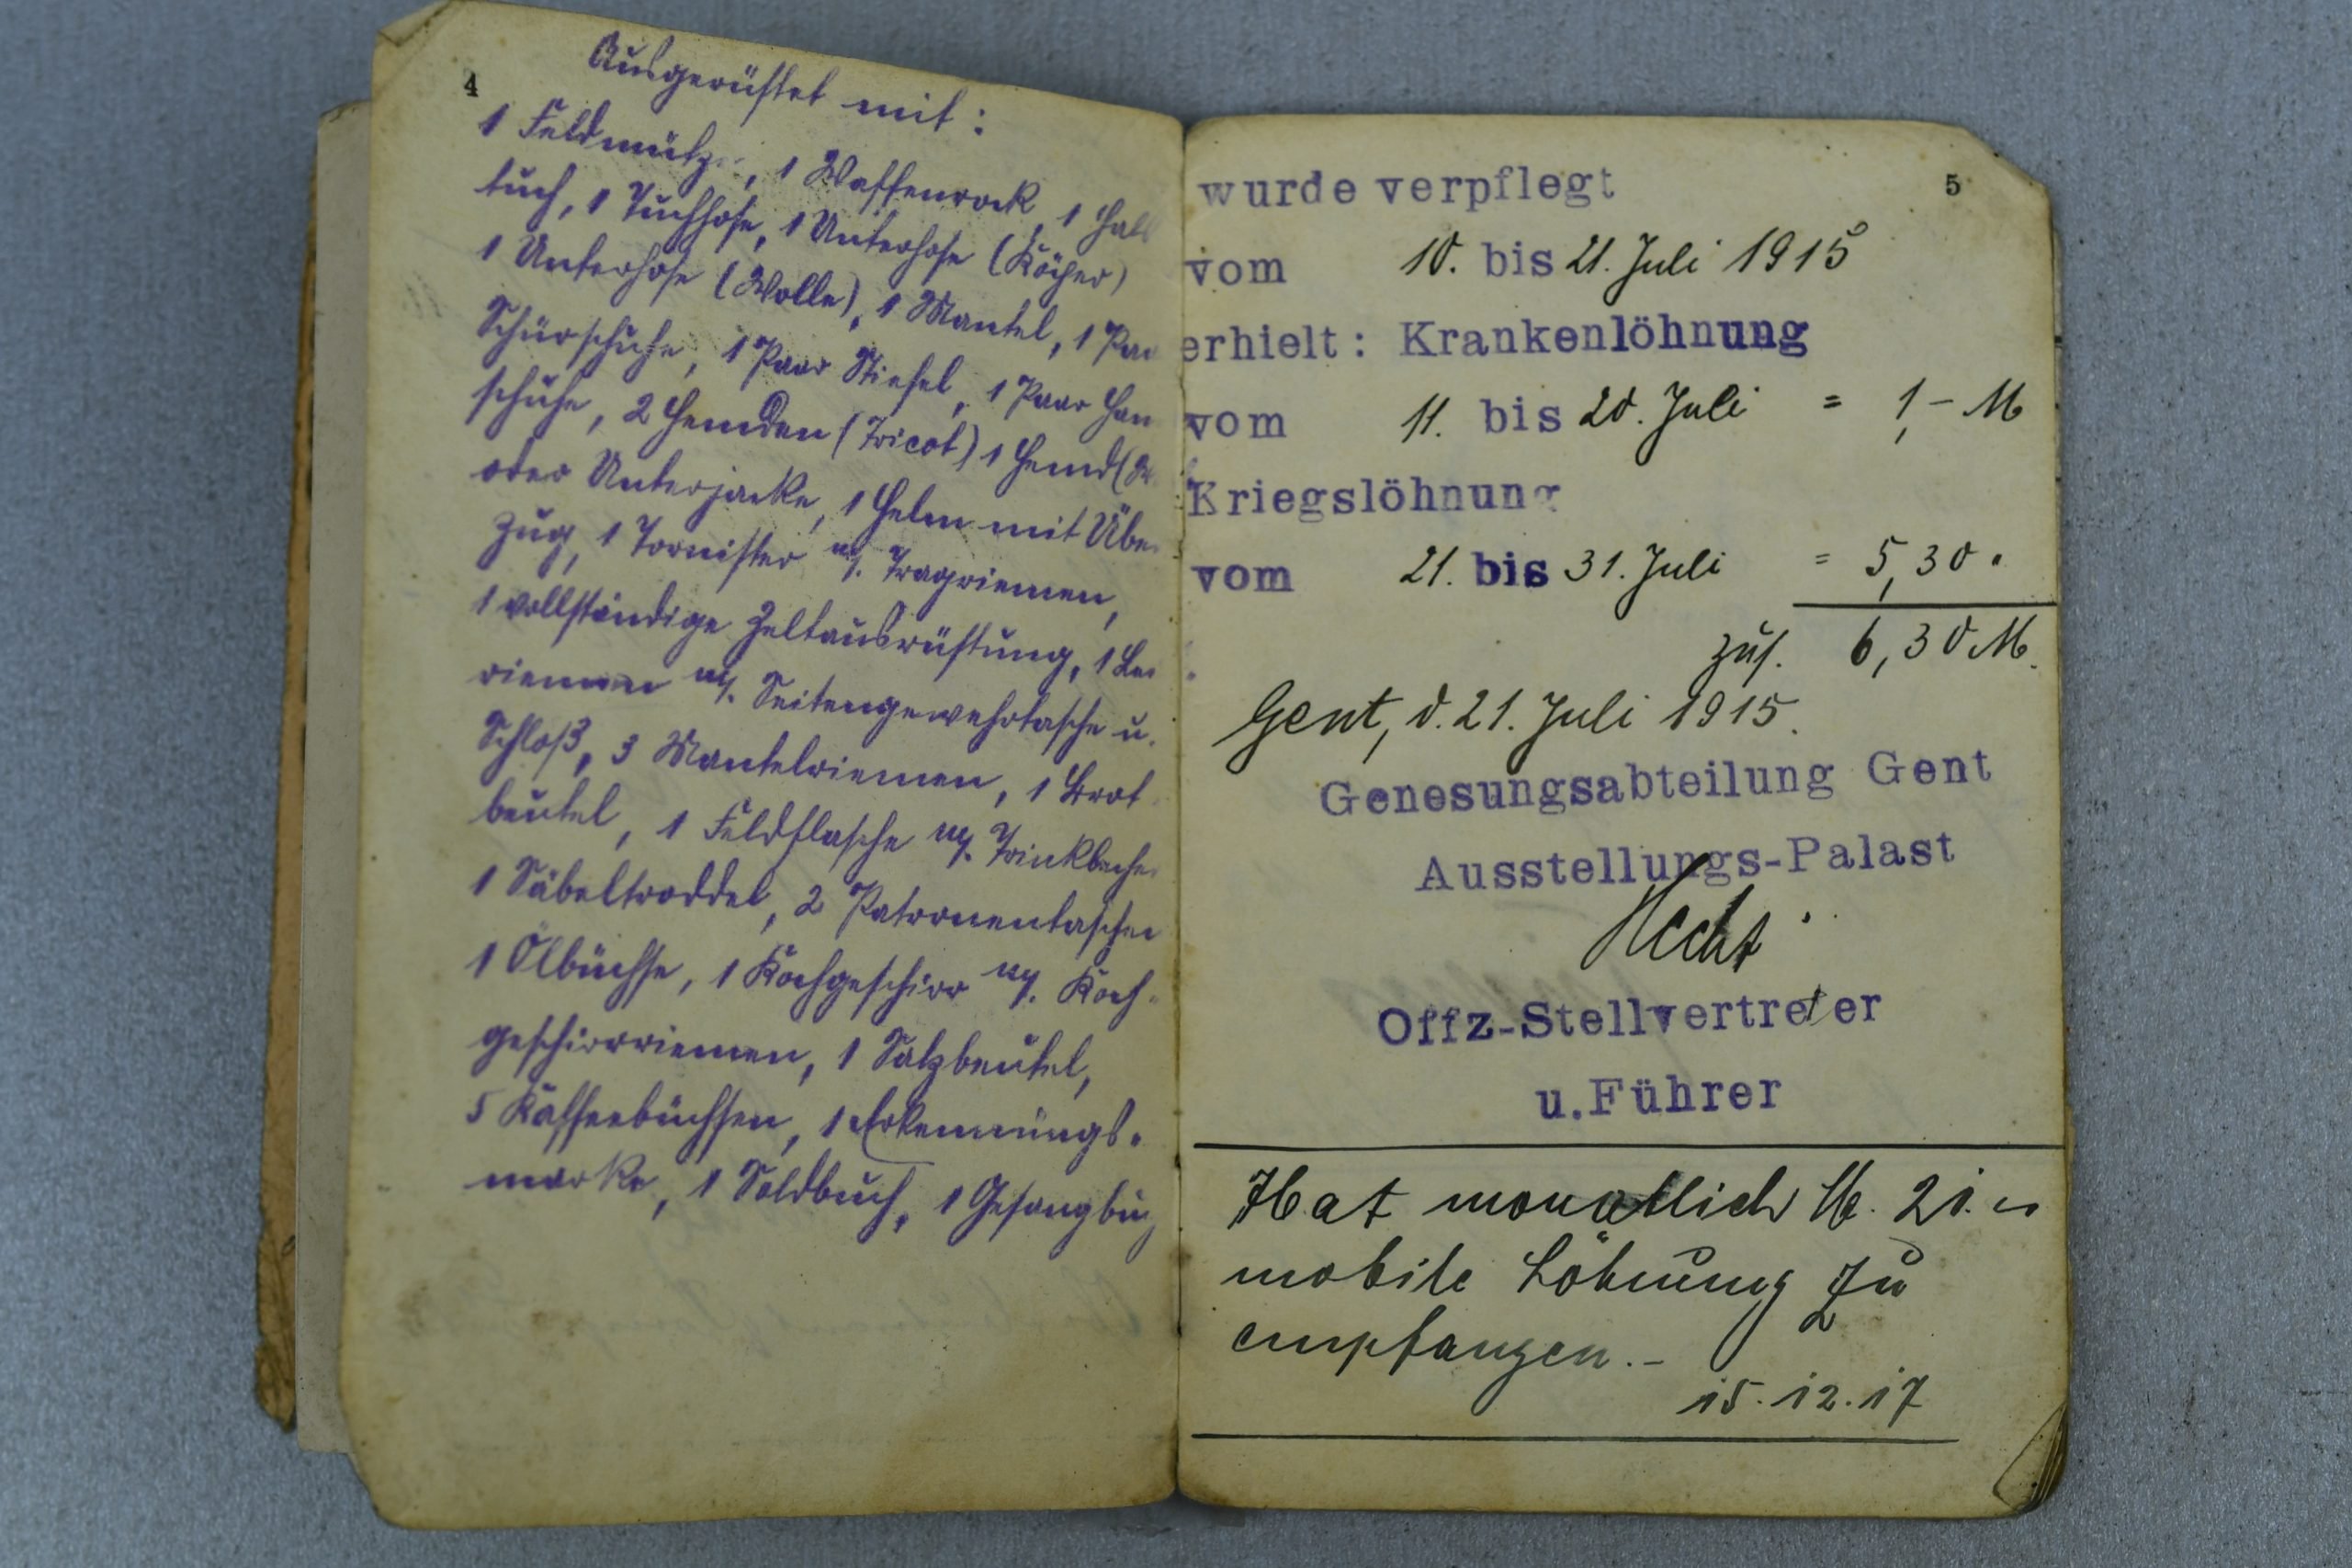 4
Ausgerüstet mit:
1 Feldmütze, 1 Waffenrock, 1 Hals
tuch, 1 Tuchhose, 1 Unterhose (Köper)
1 Unterhose (Wolle), 1 Mantel, 1 Paa
Schürschuhe, 1 Paar Stiefel, 1 Paar Han
schuhe, 2 Hemden (Tricot) 1 Hemd
oder Unterjacke, 1 Helm mit Über
zug, 1 Tornister m/. Tragriemen,
1 vollständige Zeltausrüstung, 1 Lei
riemen m/. Seitengewehrtasche u.
Schloß, 3 Mantelriemen, 1 Brot
beutel, 1 Feldflasche m/. Trinkbecher
1 Säbeltroddel, 2 Patronentaschen
1 Ölbüchse, 1 Kochgeschirr m/. Koch-
geschirrriemen, 1 Salzbeutel,
5 Kaffeebüchsen, 1 Erkennungs-
marke, 1 Soldbuch, 1 Gesangbuc
5
wurde verpflegt
vom 10. bis 21. Juli 1915
erhielt: Krankenlöhnung
vom 11. bis 20. Juli = 1,- M
Kriegslöhnung
vom 21. bis 31. Juli = 5,30 "
zus. 6,30 M.
Gent, d. 21. Juli 1915.
Genesungsabteilung Gent
Ausstellungs-Palast
Hecht
Offz-Stellvertreter
u.Führer
Hat monatlich M. 21.
mobile Löhnung zu
empfangen.-
15.12.17